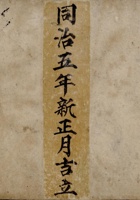 同治五年新正月吉立